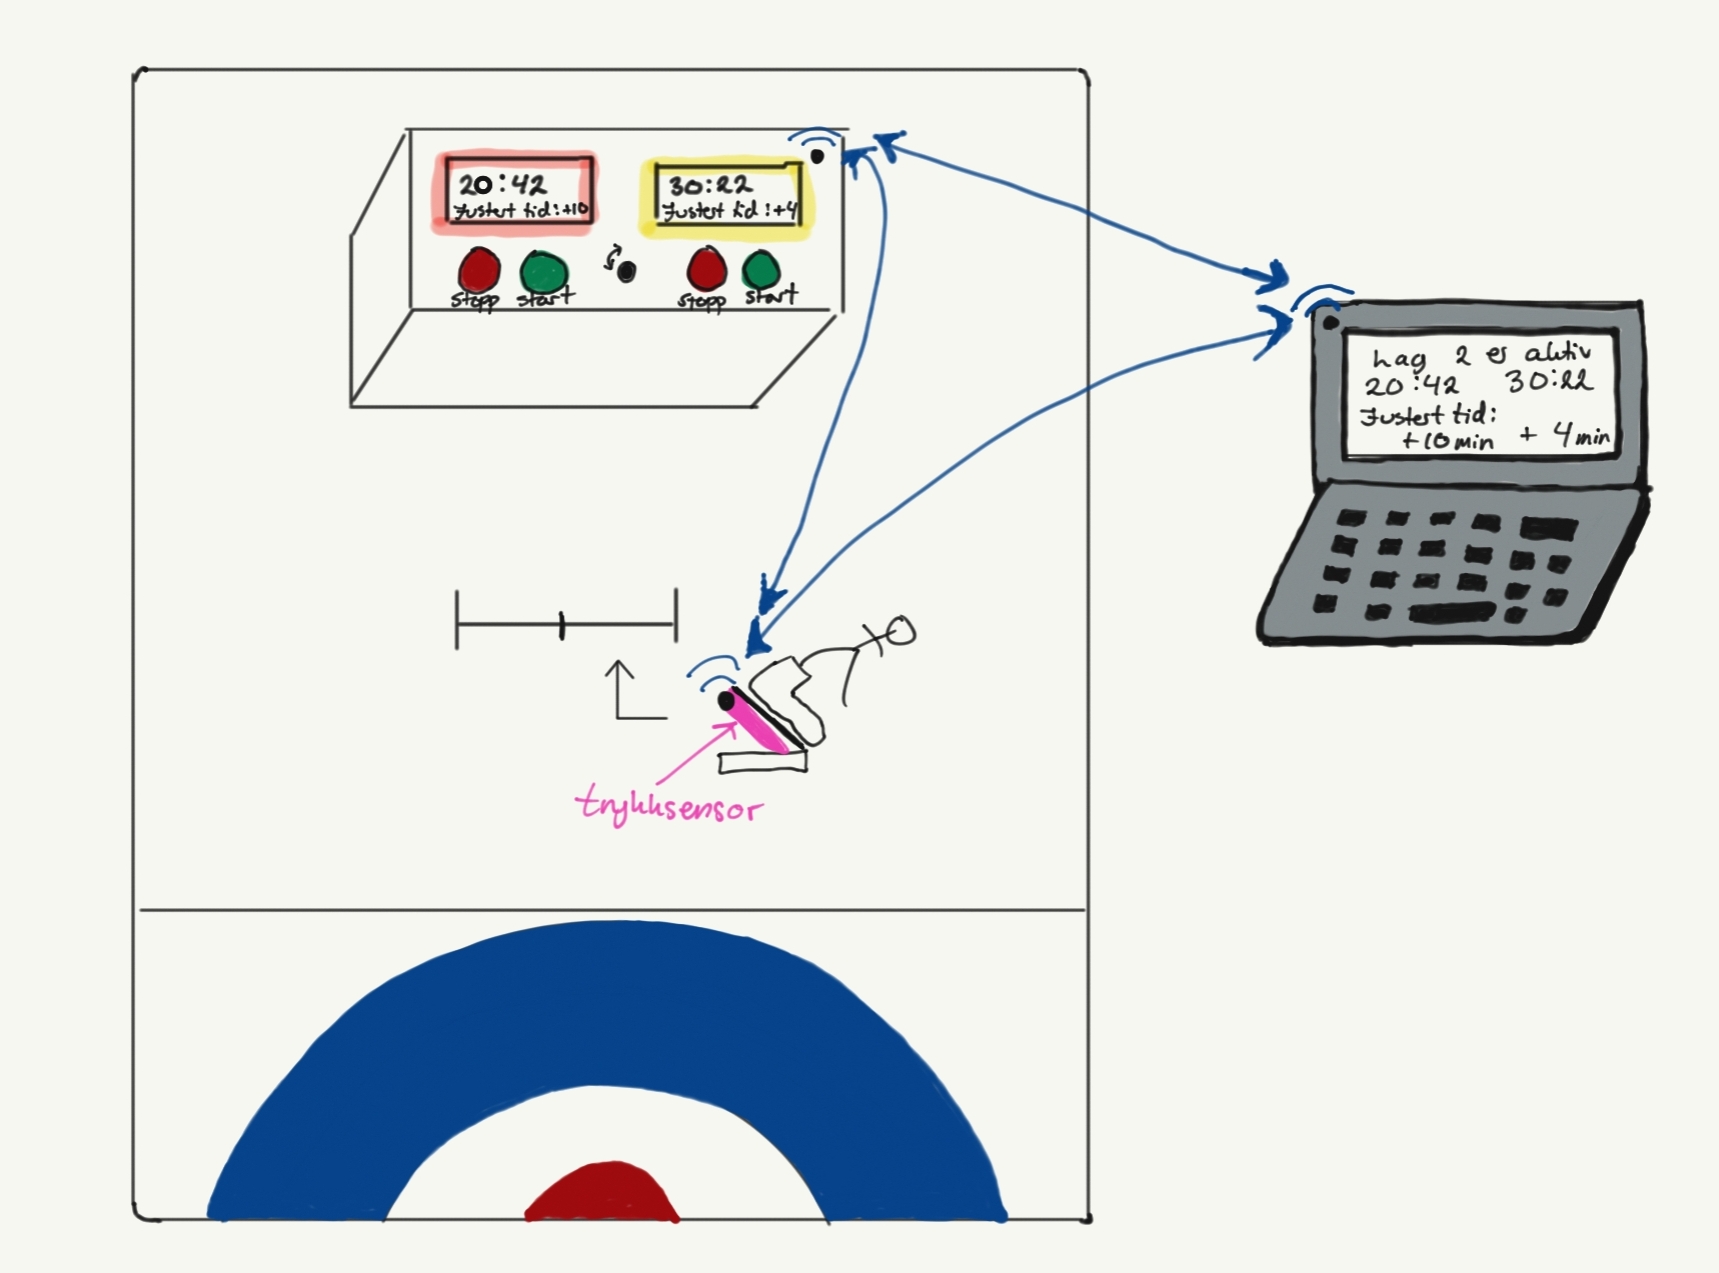 20:42
Justert tid:+10
30:22
Justert tid:+4
stopp
start
stopp
start
Lag 2 er aktiv
20:42 30:22
Justert tid:
+10min + 4min
trykksensor